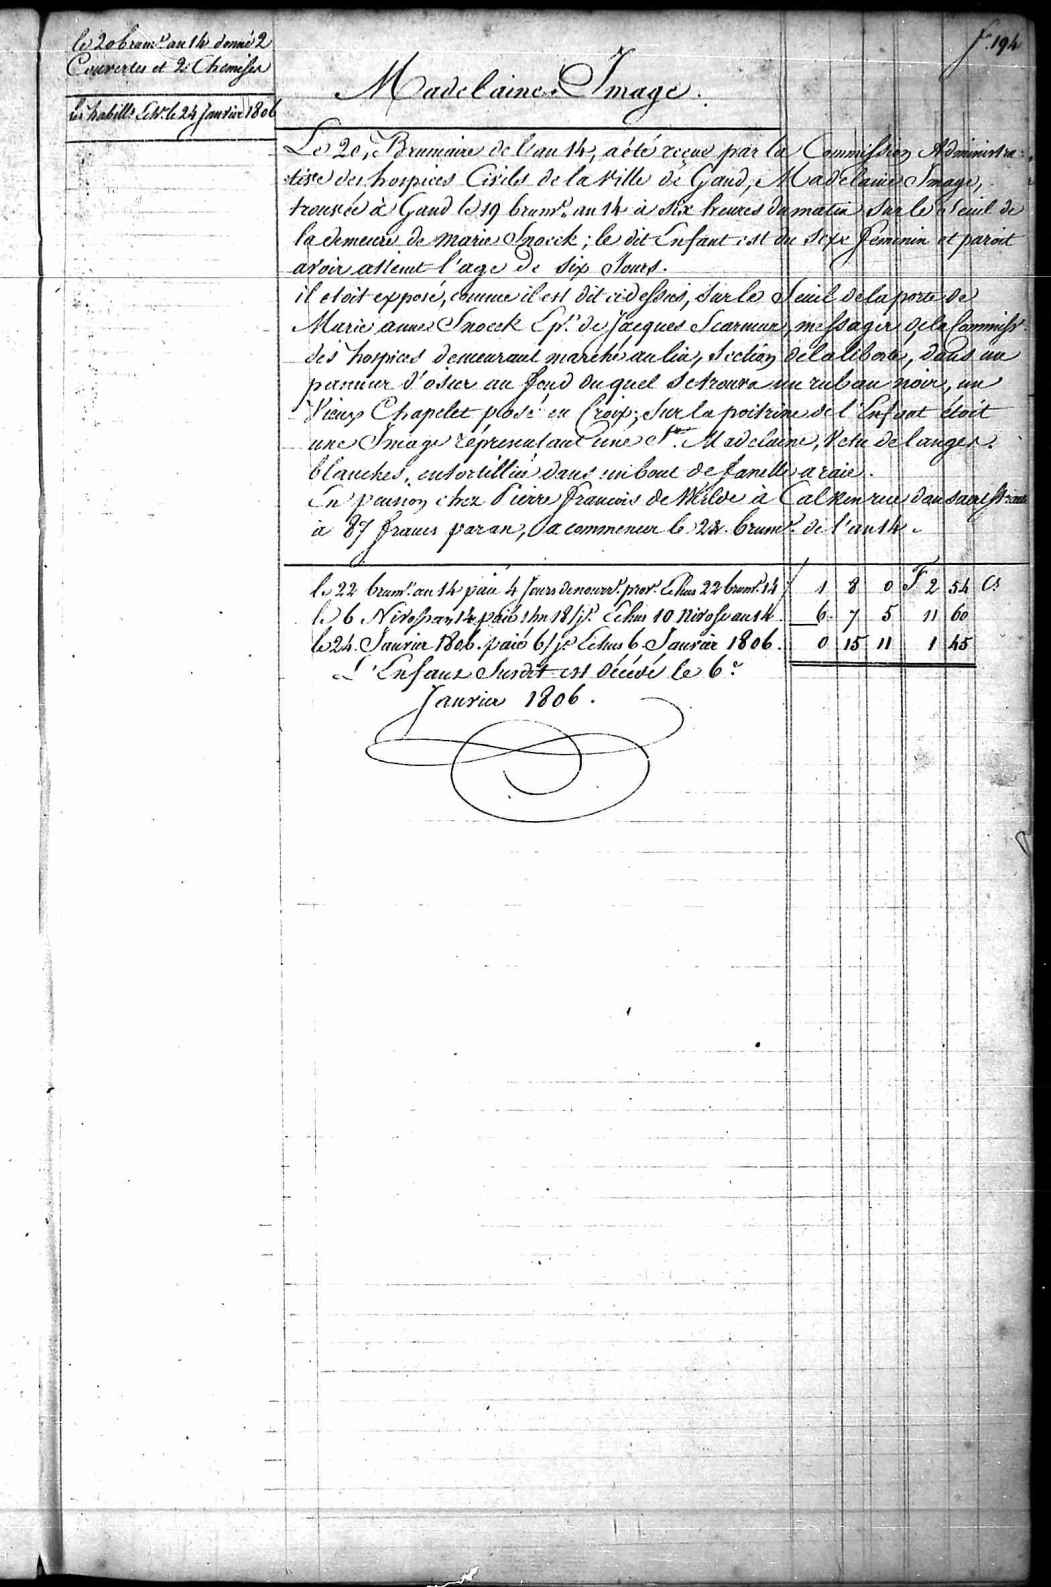 f. 194
le 20 brumre. an 14 donné 2
Couvertes et 2 Chemises
les habillts. Echus le 24 Janvier 1806
Madelaine Image.
Le 20, Brumaire de l'an 14, a été reçue par la Commission Administra-
-tive des hospices Civils de la Ville de Gand, Madelaine Image,
trouvée à Gand le 19 brumre. an 14 à six heures du matin sur le Seuil de
la demeure de marie Snoeck; le dit Enfant est du Sexe féminin et paroit
avoir atteint l'age de six Jours.
il etoit exposé, comme il est dit cidessus, sur le Seuil de la porte de
Marie anne Snoeck Epse. de Jacques messager de la Commisson.
des hospices demeurant marché au lin, Section de la liberté, dans un
panieur d'osier au fond duquel setrouva un ruban noir, un
Vieux Chapelet posé en Croix; sur la poitrine de l'Enfant étoit
une Image réprésentant une Ste. Madelaine, Vetu de langes
blanches, entortillié dans un bout de flanelle a raie.
En pension chez Pierre françois de Wilde à Calken rue
à 87 francs par an, a commencer le 24 brumre. de l'an 14.
le 22 brumre. an 14 paié 4 Jours de nourre. provre. Echus 22 brumre. 14 1 8 0 F 2 54 Cs
le 6 Nivose an 14 paié 1 m 18 js. Echus 10 Nivose an 14 6 7 5 11 60
le 24 Janvier 1806. paié 6 js Echus 6 Janvier 1806. 0 15 11 1 45
L'Enfant Susdit est décédé le 6e
Janvier 1806.